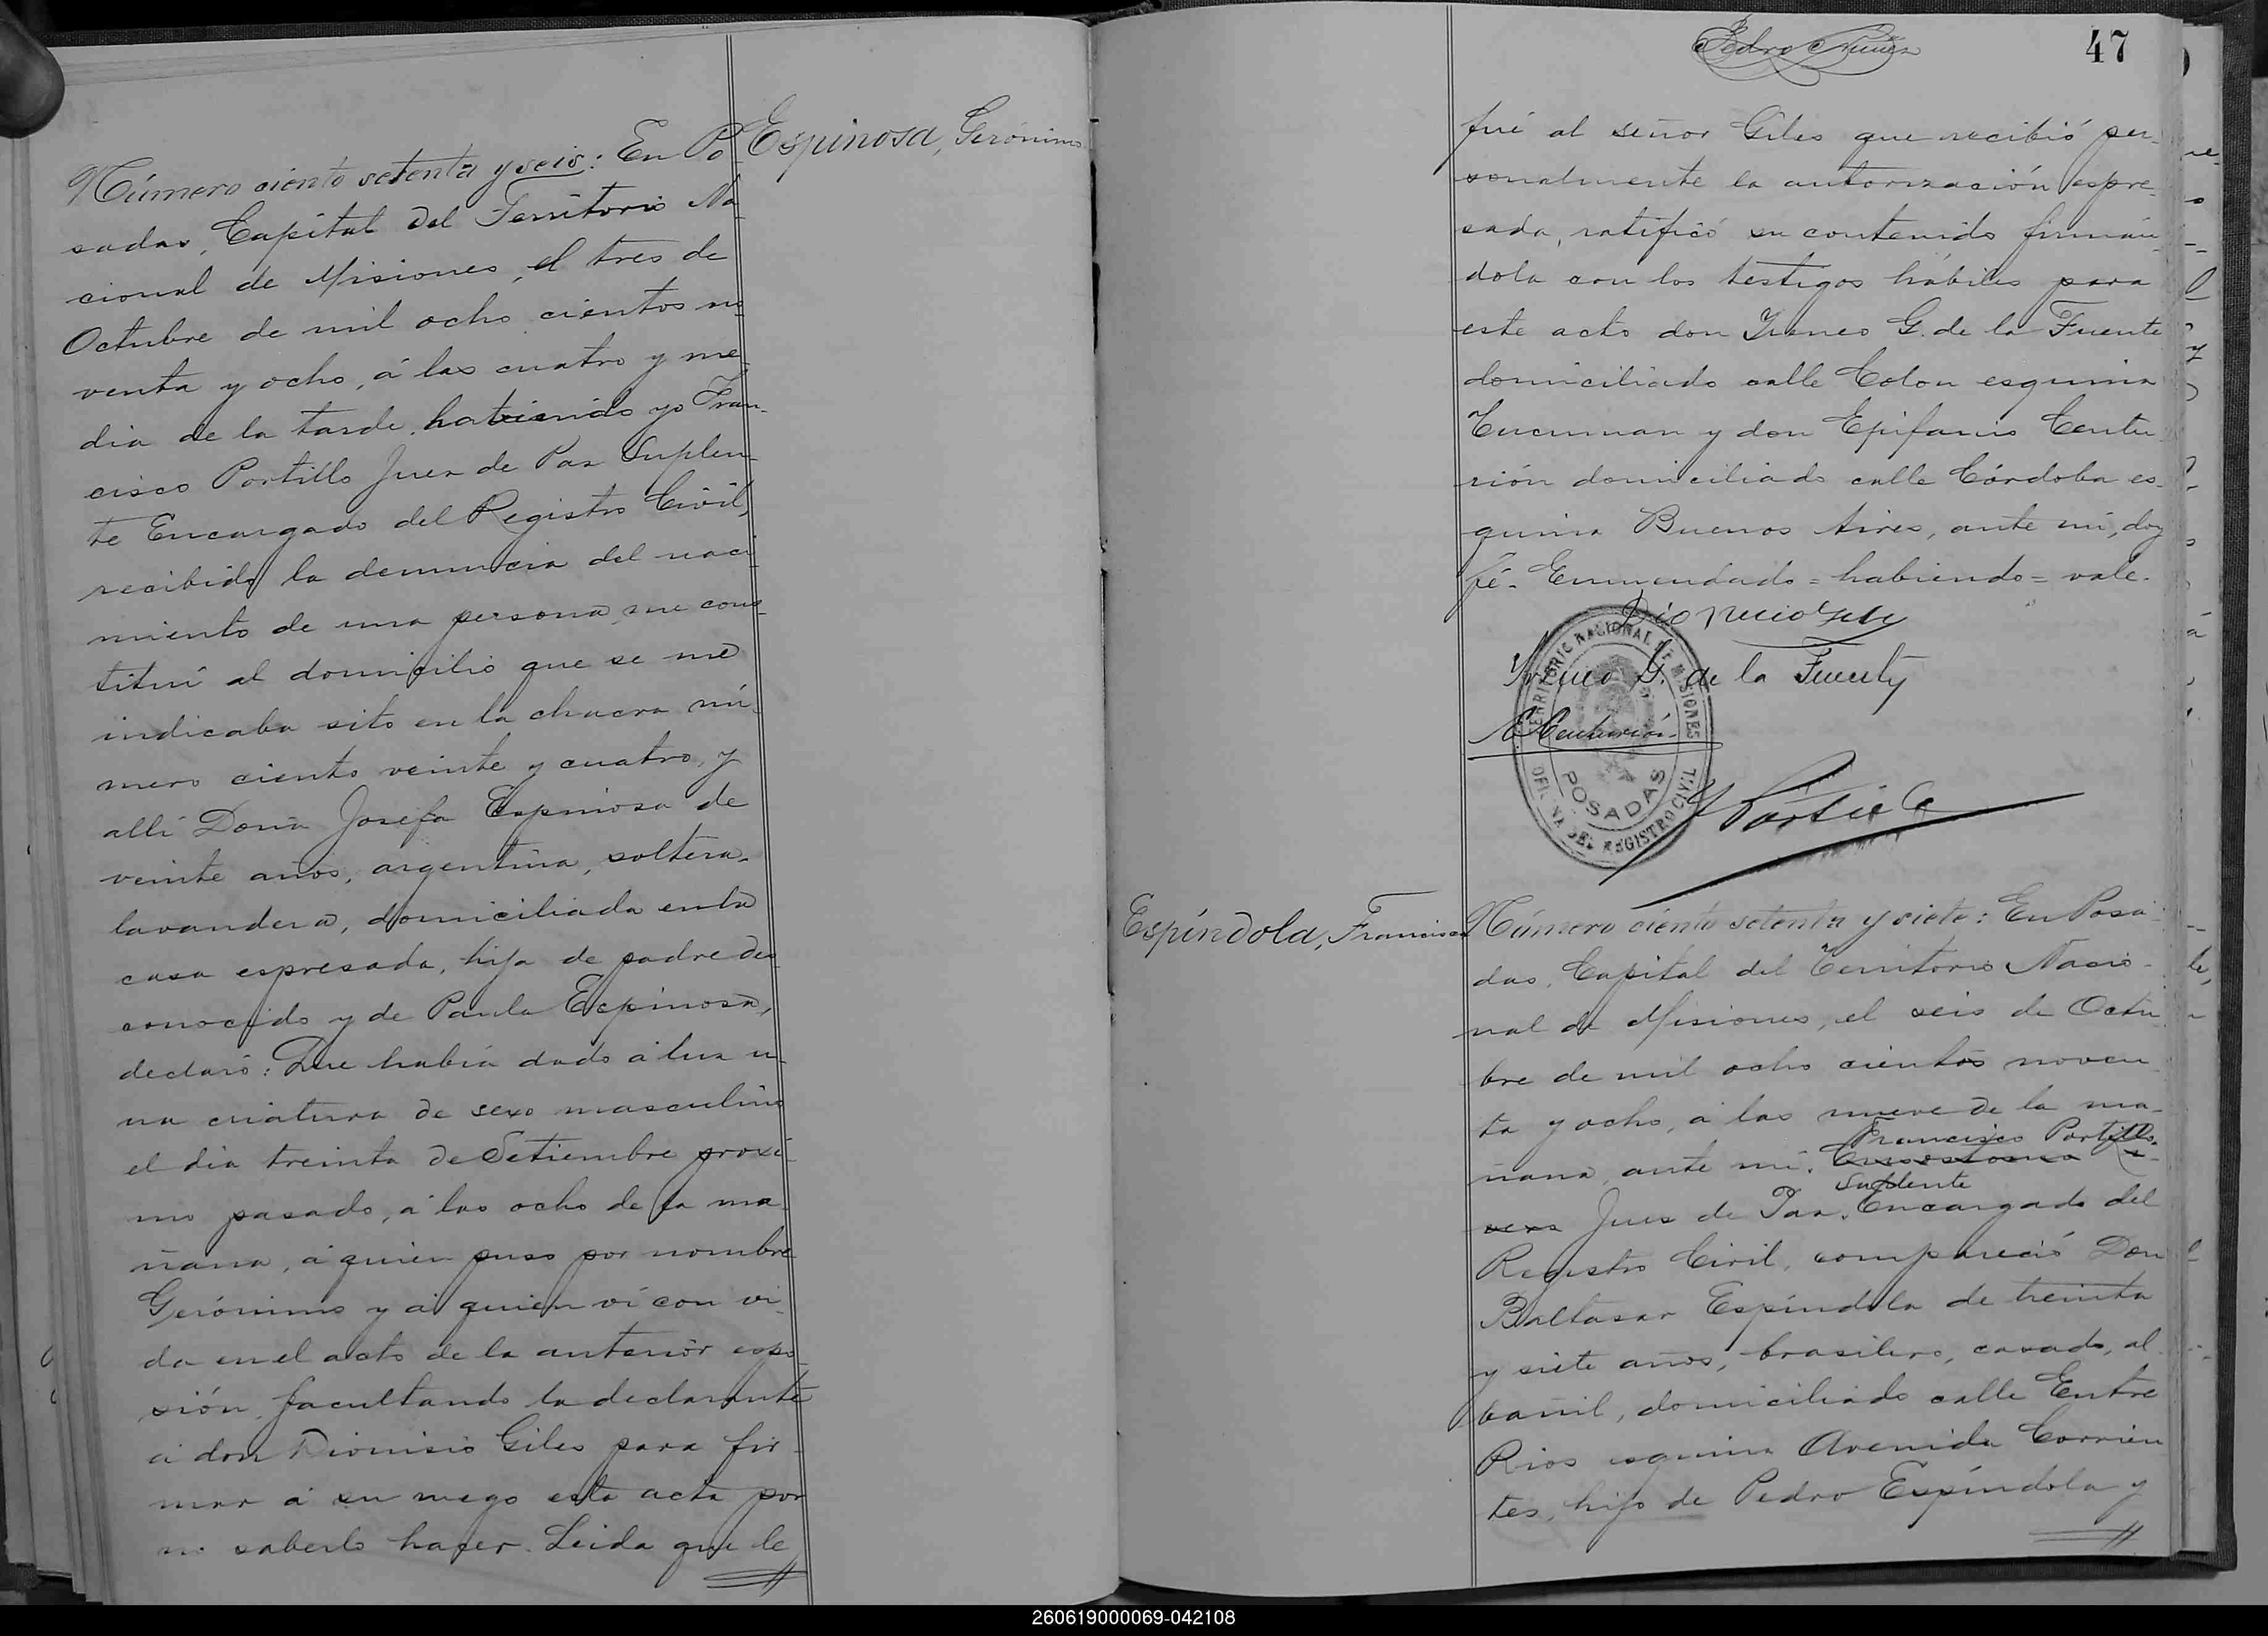 Espinosa, Gerónimo
Número ciento setenta y seis: En Po
sadas, Capital del Territorio Na
cional de Misiones, el tres de
Octubre de mil ocho cientos no
venta y ocho, á las cuatro y me
dia de la tarde, habiendo yo Fran-
cisco Portillo Juez de Paz Suplen-
te Encargado del Registro Civil,
recibido la denuncia del naci
miento de una persona, me cons
tituí al domicilio que se me
indicaba sito en la chacra nú
mero ciento veinte y cuatro, y
allí Doña Josefa Espinosa de
veinte años, argentina, soltera,
lavandera, domiciliada en la
casa espresada, hija de padre des
conocido y de Paula Espinosa,
declaró: Que había dado á luz u-
na criatura de sexo masculino
el dia treinta de Setiembre proxi
mo pasado, á las ocho de la ma
ñana, á quien puso por nombre
Gerónimo y á quien ví con vi
da en el acto de la anterior espo
sión, facultando la declarante
á don Dionisio Giles para fir-
mar á su ruego esta acta por
no saberlo hacer. Leida que le
47
fué al señor Giles que recibió per-
sonalmente la autorización espre
sada, ratificó su contenido firmán
dola con los testigos hábiles para
este acto don Ireneo G. de la Fuente
domiciliado calle Colon esquina
Tucuman y don Epifanio Centu
rión domiciliado calle Córdoba es-
quina Buenos Aires, ante mí, doy
fé. Enmendado = habiendo = vale.
Ireneo G. de la Fuente
E Centurión
TERRITORIO NACIONAL DE MISIONES
POSADAS
OFICINA DEL REGISTRO CIVIL
Portillo
Espíndola, Francisca
Número ciento setenta y siete: En Posa
das, Capital del Territorio Nacio-
nal de Misiones, el seis de Octu
bre de mil ocho cientos noven
ta y ocho, á las nueve de la ma-
Francisco Portillo
ñana, ante mí,
Suplente
Juez de Paz, Encargado del
Registro Civil, compareció Don
Baltasar Espíndola de treinta
y siete años, brasilero, casado, al
bañil, domiciliado calle Entre
Rios esquina Avenida Corrien
tes, hijo de Pedro Espíndola y
260619000069-042108